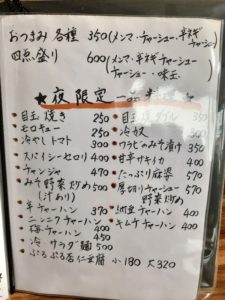 おつまみ 各種 350 (メンマ・チャーシュー・半ネギチャーシュー)
四点盛り 600 (メンマ・半ネギチャーシュー
チャーシュー・味玉)
★夜限定一品
・目玉焼き 250
・モロキュー 250
・冷やしトマト 300
・スパイシーセロリ 400
・チャンジャ 470
・みそ野菜炒め 500
(汁あり)
・半チャーハン 370
・ニンニクチャーハン 400
・梅チャーハン 400
・冷サラダ麺 500
・ぷるぷる杏仁豆腐 小180 大320
・目玉焼きダブル 350
・冷奴 300
・ワラビのみそ漬け 350
・甘辛サキイカ 400
・たっぷり麻婆 570
・厚切りチャーシュー 500
野菜炒め
・納豆チャーハン 400
・キムチチャーハン 400